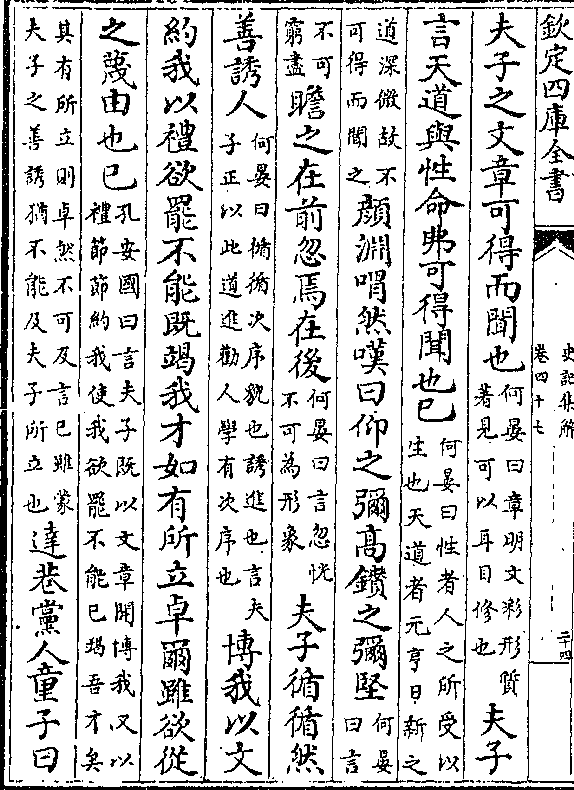 欽定四庫全書
史記集解
卷四十七
二十四
夫子之文章可得而聞也何晏曰章明文彩形質著見可以耳目修也夫子
言天道與性命弗可得聞也已何晏曰性者人之所受以生也天道者元亨日新之
道深微故不可得而聞之顔淵喟然嘆曰仰之彌髙鑚之彌堅何晏曰言
不可窮盡瞻之在前忽焉在後何晏曰言忽怳不可為形象夫子循循然
善誘人何晏曰循循次序貌也誘進也言夫子正以此道進勸人學有次序也博我以文
約我以禮欲罷不能既竭我才如有所立卓爾雖欲從
之蔑由也已孔安國曰言夫子既以文章開博我又以禮節節約我使我欲罷不能已竭吾才矣
其有所立則卓然不可及言已雖蒙夫子之善誘猶不能及夫子所立也達巷黨人童子曰